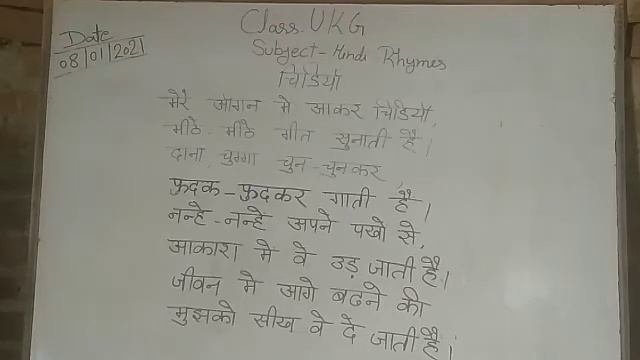 Date
08/01/2021
Class UKG
Subject-Hindi Rhymes
चिडियाँ
मेरे आँगन मे आकर चिडियाँ,
मीठे-मीठे गीत सुनाती है।
दाना, चुग्गा चुन-चुनकर,
फुदक-फुदकर गाती है।
नन्हे-नन्हे अपने पखो से,
आकाश मे वे उड़ जाती है।
जीवन मे आगे बढने की
मुझको सीख वे दे जाती है।